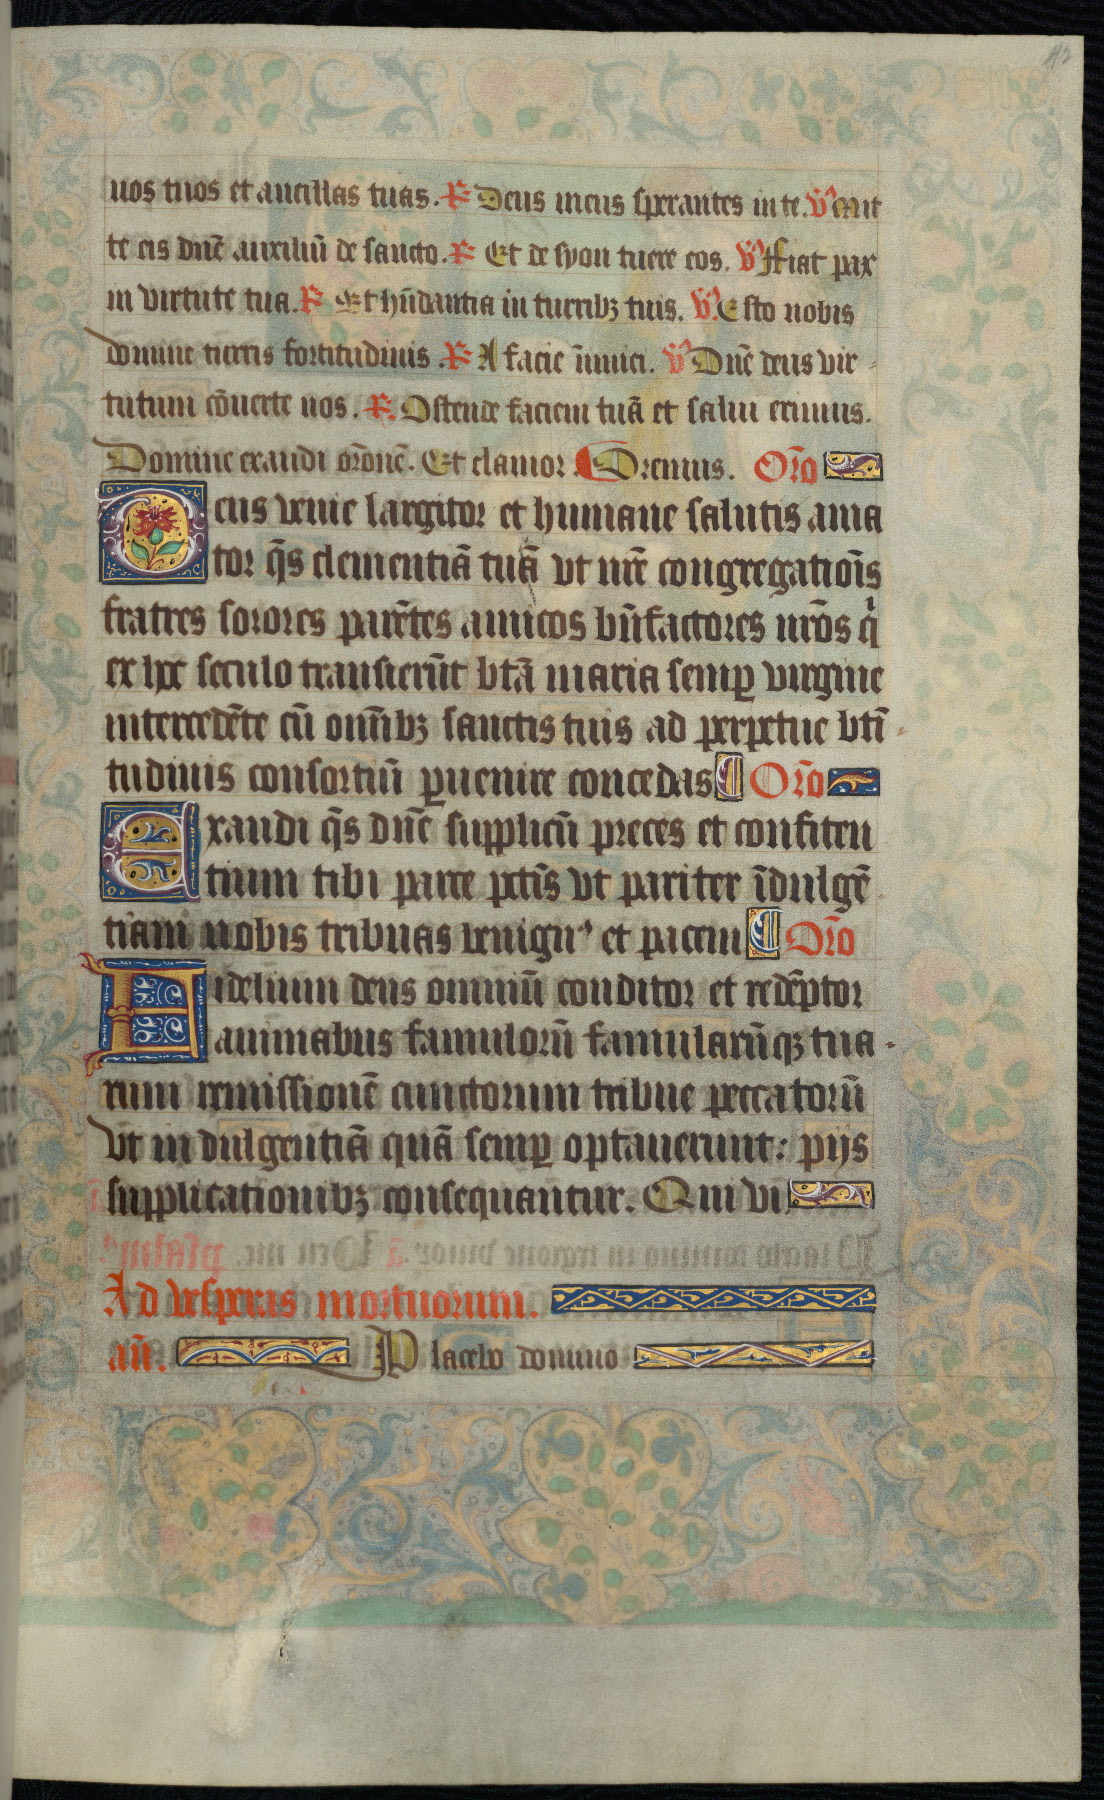 uos tuos et ancillas tuas. R Deus meus sperantes in te. V Mit
te eis dn̄e auxiliū de sancto. R Et de syon tuere eos. V Ffiat pax
in virtute tua. R Et hn̄dantia in turribꝫ tuis. V Esto nobis
domine turris fortitudinis. R A facie īimici. V Dn̄e deus vir
tutum cōuerte nos. R Ostende faciem tuā et salui erimus.
Domine exaudi orōnē. Et clamor. Oremus. Oro
Deus venie largitor et humane salutis ama
tor q̄s clementiā tuā vt nr̄e congregatiōis
fratres sorores parētes amicos bn̄factores nr̄os qͥ
ex hoc seculo transierūt btā maria semꝑ virgine
intercedēte cū omībꝫ sanctis tuis ad perpetue btī
tudinis consortiū ꝑuenire concedas Oro
Exaudi q̄s dn̄e supplicū preces et confiten
tium tibi parce pctīs vt pariter īdulgē
tiam nobis tribuas benignꝰ et pacem Oro
Fidelium deus omniū conditor et redēptor
animabus famulorū famularūqꝫ tua
rum remissionē cunctorum tribue peccatorū
vt indulgentiā quā semꝑ optauerunt: pijs
supplicationibꝫ consequantur. Qui vi
Ad vesperas mortuorum.
an̄. Placebo domino